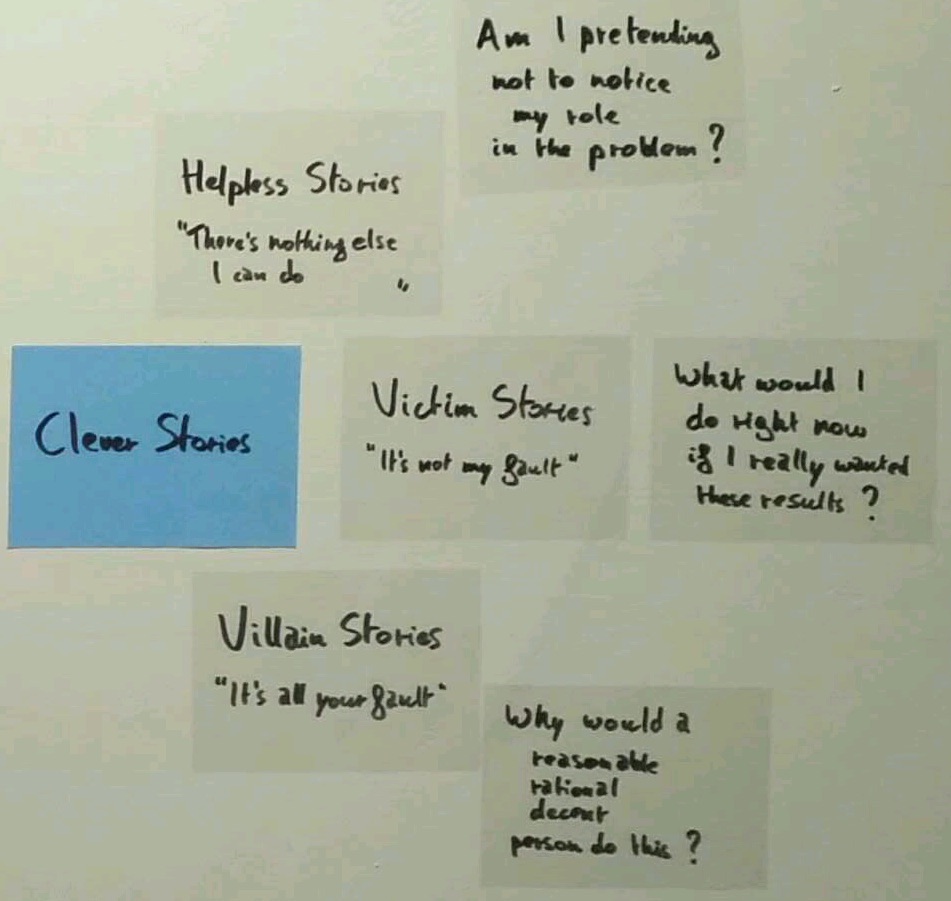 Am I pretending
not to notice
my role
in the problem?
Helpless Stories
"There's nothing else
I can do "
Clever Stories
Victim Stories
"It's not my fault"
What would I
do right now
if I really wanted
these results?
Villain Stories
"It's all your fault"
Why would a
reasonable
rational
decent
person do this?